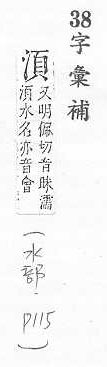 38字彙補
湏
又明佩切音昧濡
湏水名亦音會
(水部·P115)